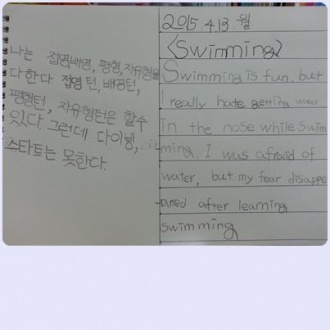 나는 접영배영, 평형, 자유형을
다한다. 접영 턴, 배영턴,
평형턴, 자유형턴은 할수
있다. 그런데 다이빙,
스타트는 못한다.
2015. 4. 13. 월
<Swimming>
Swimming is fun, but
I really hate getting water
in the nose while Swim
ming. I was afraid of
water, but my fear disappe
-ared after learning
swimming